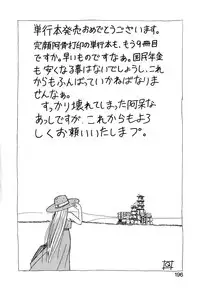 単行本発売おめでとうございます。
完顔阿骨打印の単行本も、もう9冊目
ですか。早いものですなぁ。国民年金
も安くなる事はないでしょうし、これ
からもふんばっていかねばなりま
せんなぁ。
すっかり壊れてしまった阿呆な
あっしですが、これからもよろ
しくお願いいたしまプ。
196